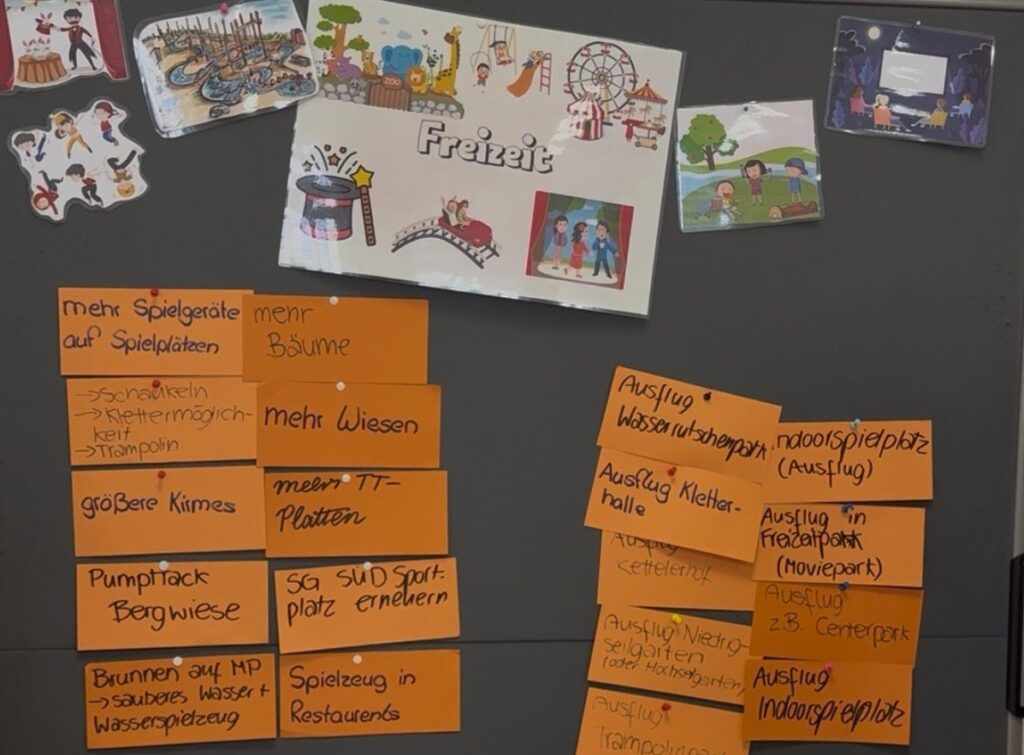 Freizeit
mehr Spielgeräte
auf Spielplätzen
→Schaukeln
→Klettermöglich-
keit
→Trampolin
größere Kirmes
Pumptrack
Bergwiese
Brunnen auf MP
→sauberes Wasser+
Wasserspielzeug
mehr
Bäume
mehr Wiesen
mehr TT-
Platten
SG SÜD Sport-
platz erneuern
Spielzeug in
Restaurents
Ausflug
Wasserrutschenpark
Ausflug Kletter-
halle
Ausflug
Kettelerhof
Ausflug Niedrig-
seilgarten
(oder Hochseilgarten)
Ausflug
Trampolinpark
Indoorspielplatz
(Ausflug)
Ausflug in
Freizeitpark
(Moviepark)
Ausflug
z.B. Centerpark
Ausflug
Indoorspielplatz